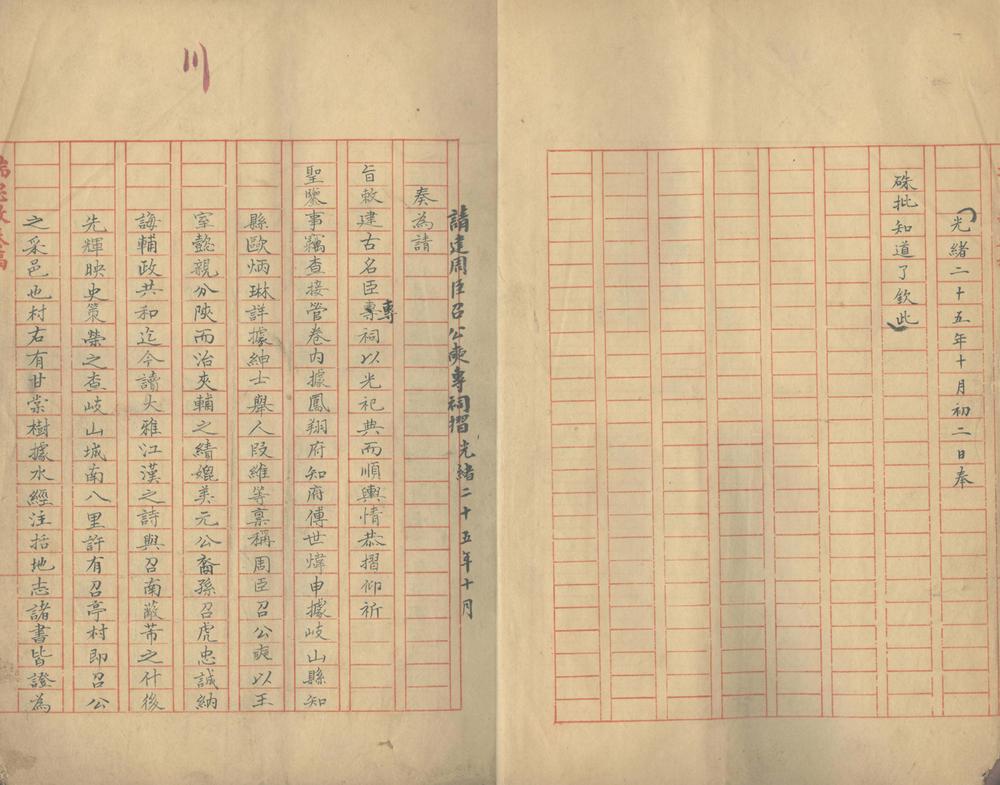 光緒二十五年十月初二日奉
硃批知道了欽此
請建周臣召公奭專祠摺 光緒二十五年十月
奏為請
旨敕建古名臣專祠以光祀典而順輿情恭摺仰祈
專
聖鑒事竊查接管卷內據鳳翔府知府傅世煒申據岐山縣知
縣歐炳琳詳據紳士舉人段維等稟稱周臣召公奭以王
室懿親分陝而治夾輔之績媲美元公裔孫召虎忠誠納
誨輔政共和迄今讀大雅江漢之詩與召南蔽芾之什後
先輝映史策榮之查岐山城南八里許有召亭村即召公
之采邑也村右有甘棠樹據水經注括地志諸書皆證為
川